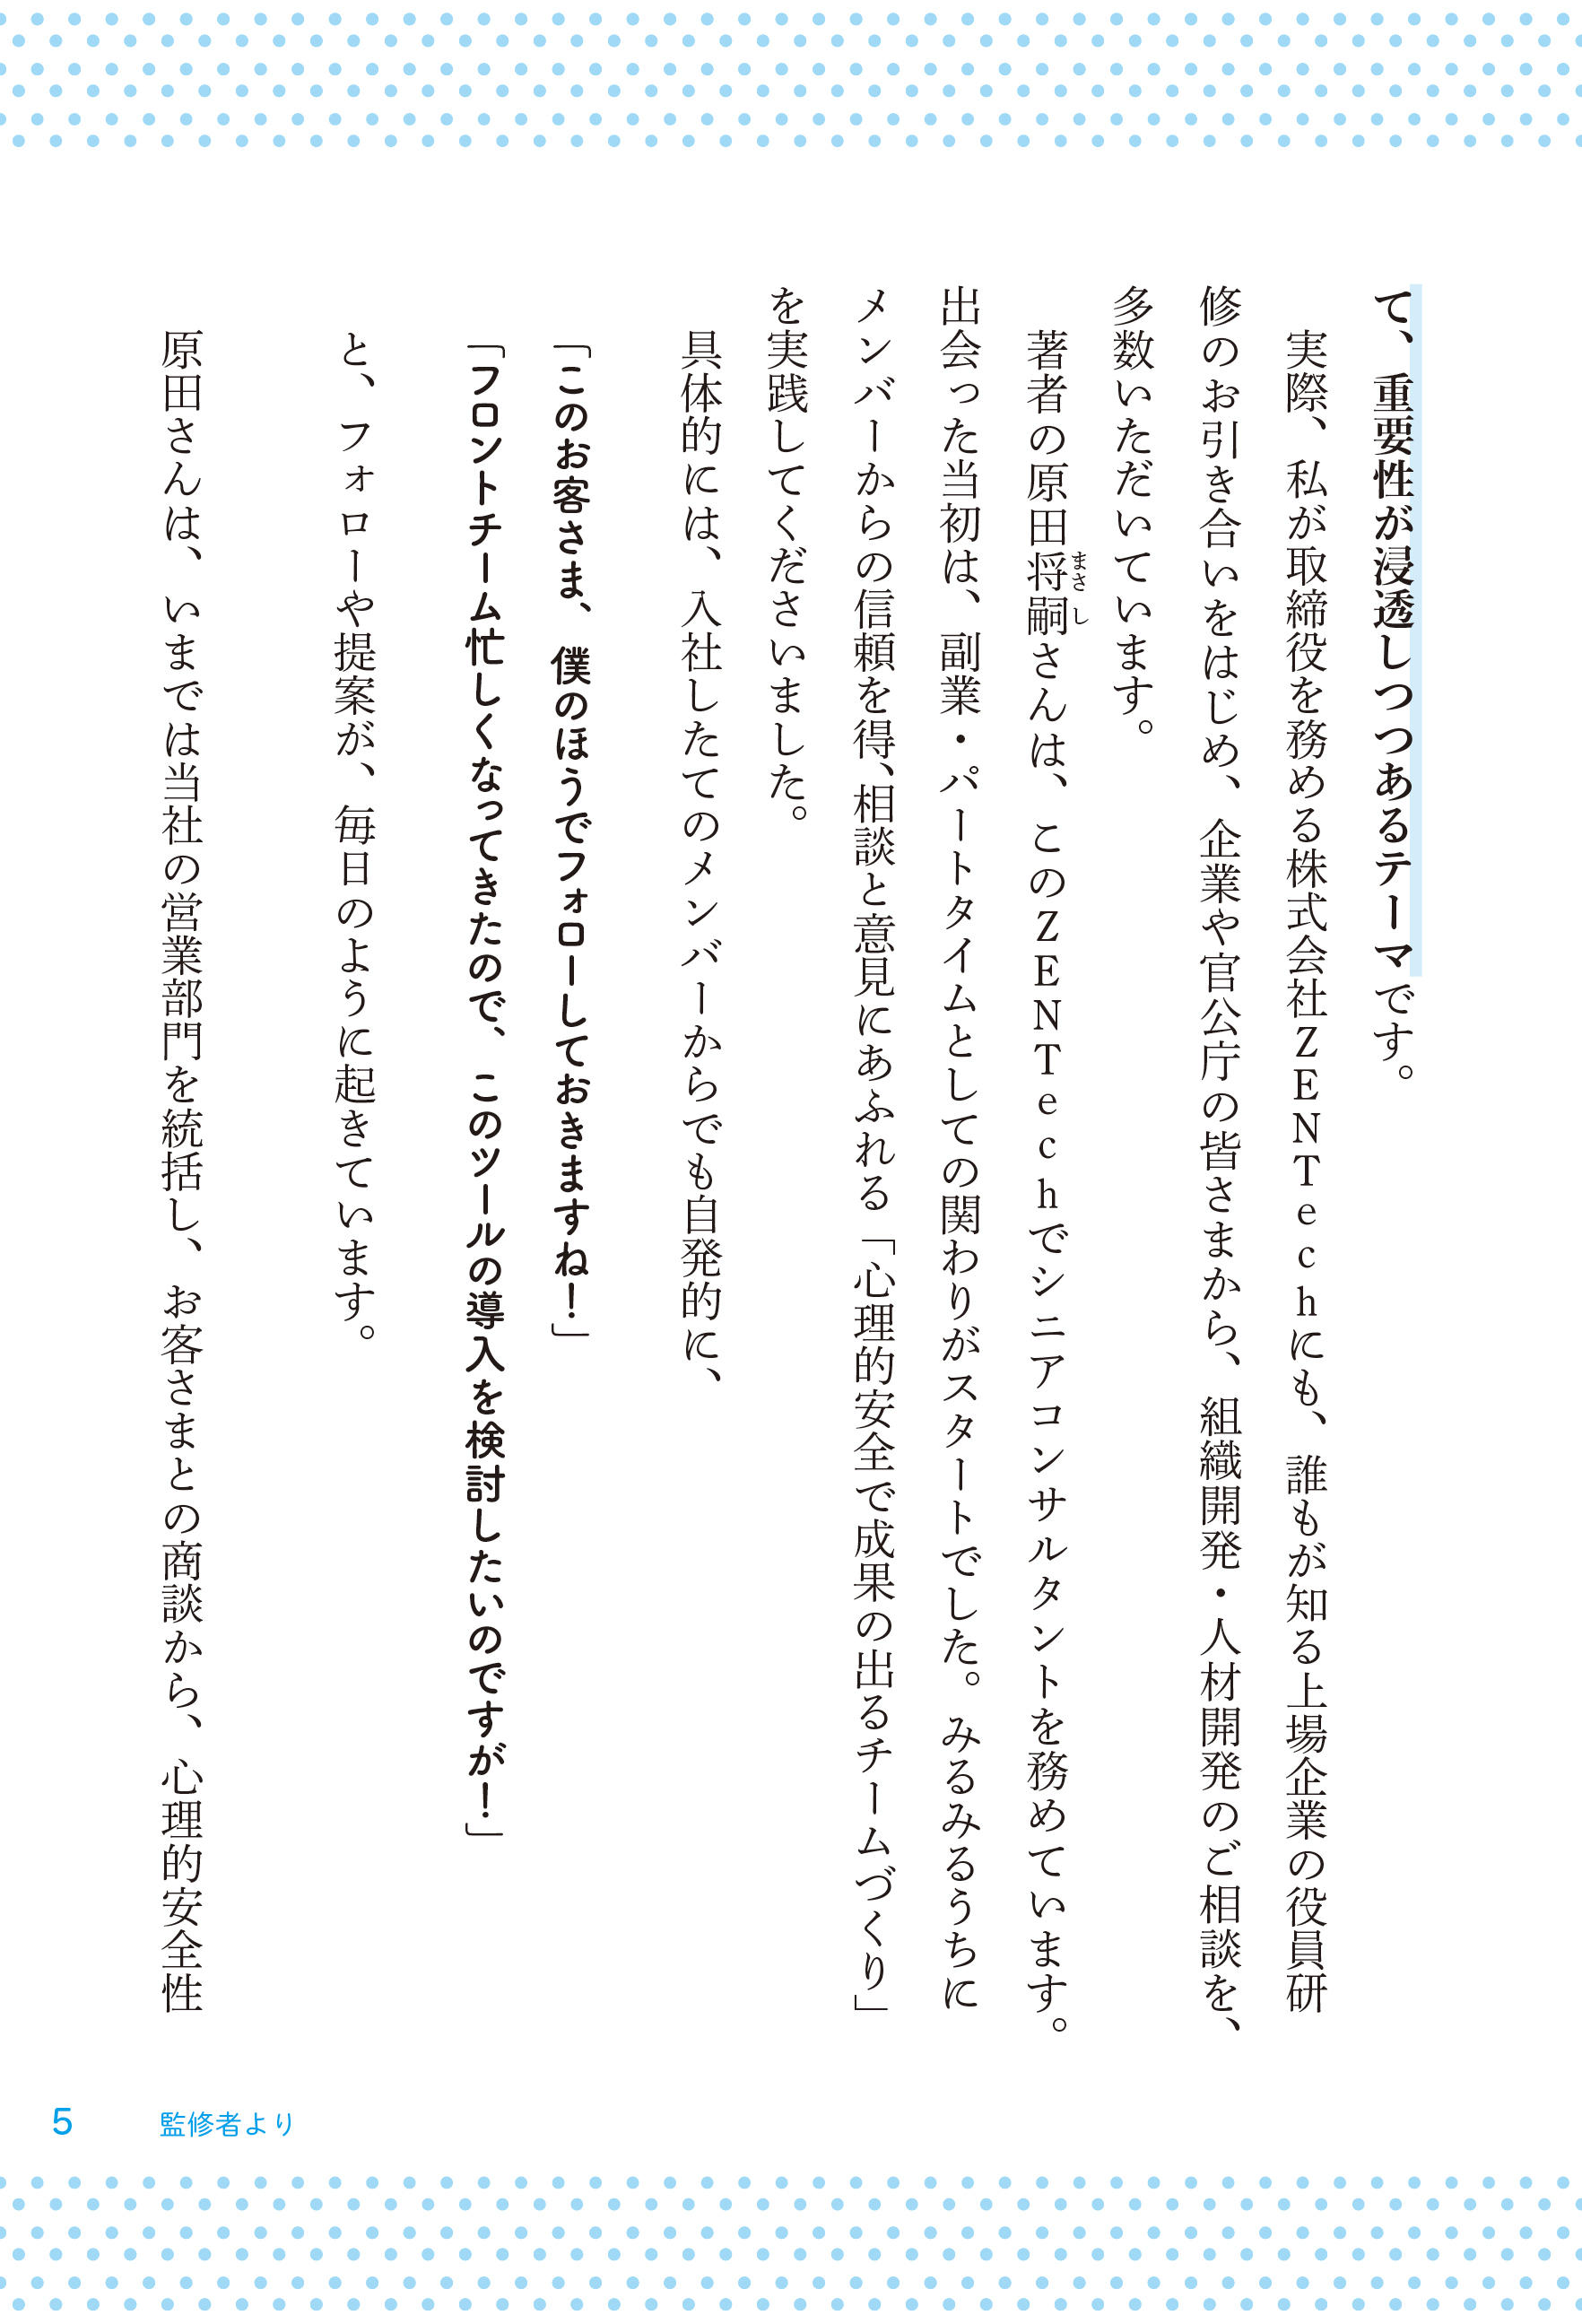 て、重要性が浸透しつつあるテーマです。
実際、私が取締役を務める株式会社ZENTechにも、誰もが知る上場企業の役員研
修のお引き合いをはじめ、企業や官公庁の皆さまから、組織開発・人材開発のご相談を、
多数いただいています。
著者の原田将嗣さんは、このZENTechでシニアコンサルタントを務めています。
まさし
出会った当初は、副業・パートタイムとしての関わりがスタートでした。みるみるうちに
メンバーからの信頼を得、相談と意見にあふれる「心理的安全で成果の出るチームづくり」
を実践してくださいました。
具体的には、入社したてのメンバーからでも自発的に、
「このお客さま、僕のほうでフォローしておきますね！」
「フロントチーム忙しくなってきたので、このツールの導入を検討したいのですが！」
と、フォローや提案が、毎日のように起きています。
原田さんは、いまでは当社の営業部門を統括し、お客さまとの商談から、心理的安全性
5
監修者より